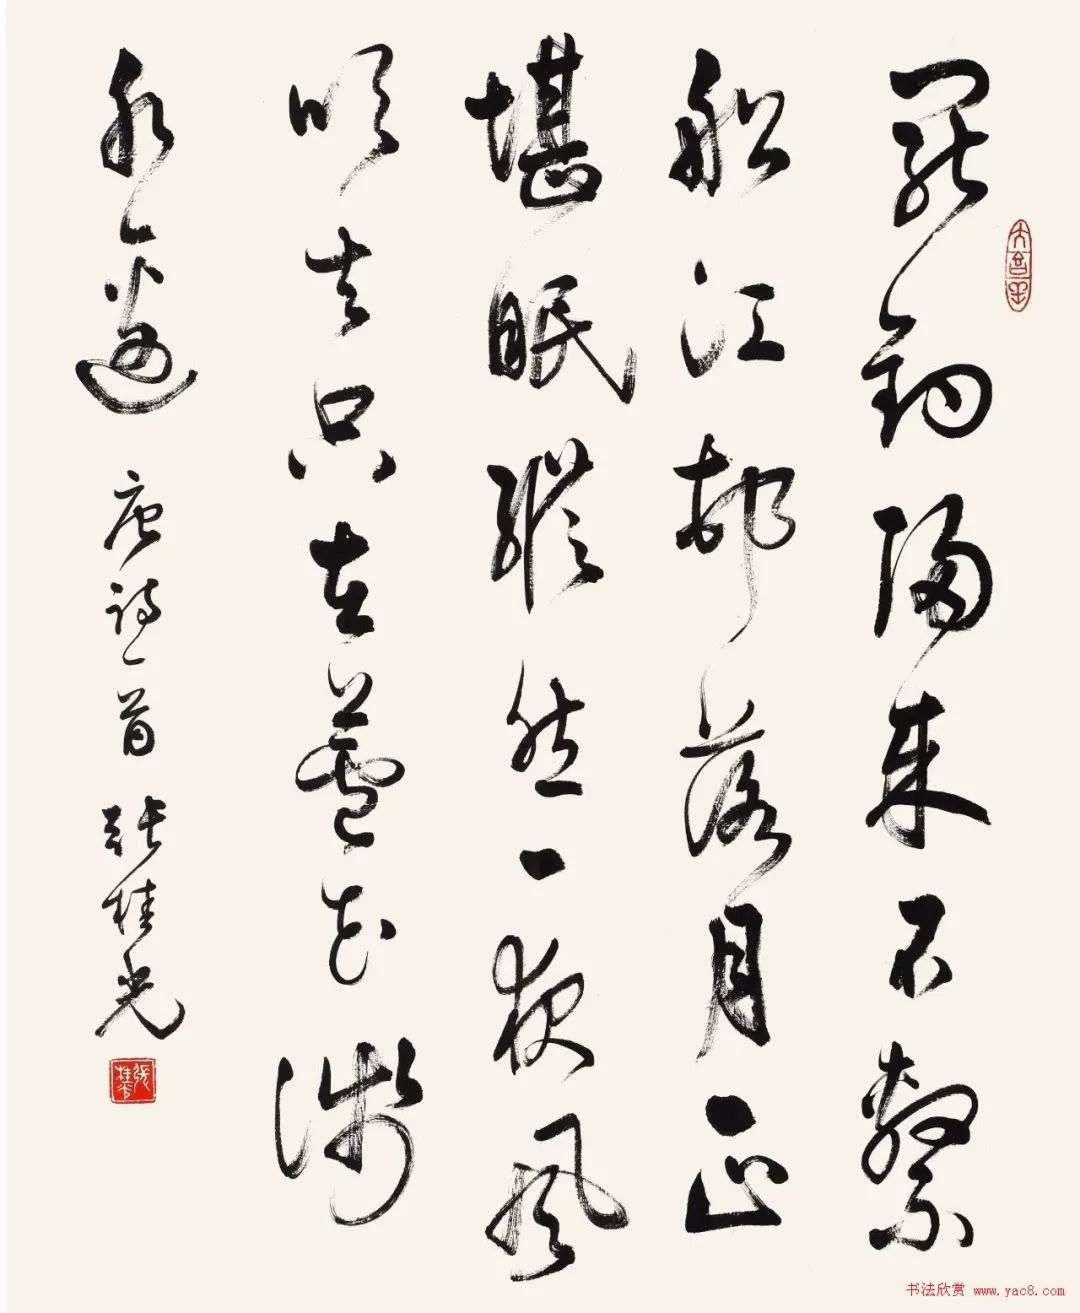 罷釣歸來不繫
船江邨落月正
堪眠縱然一夜風
吹去只在蘆花淺
水邊 唐詩一首 張桂光
书法欣赏 www.yac8.com